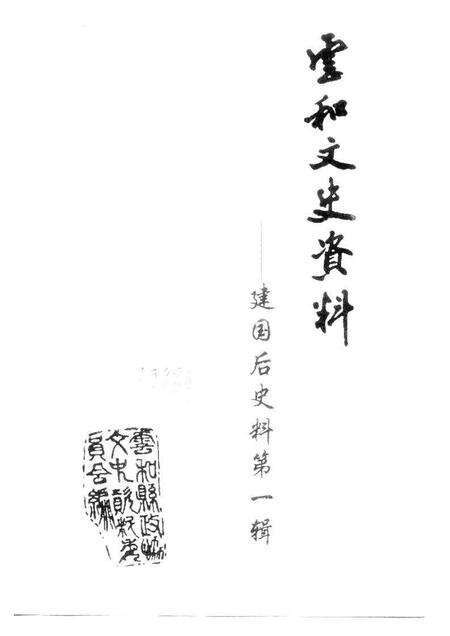 雲和文史資料
——建国后史料第一辑
雲和縣政協
文史資料委
員会編